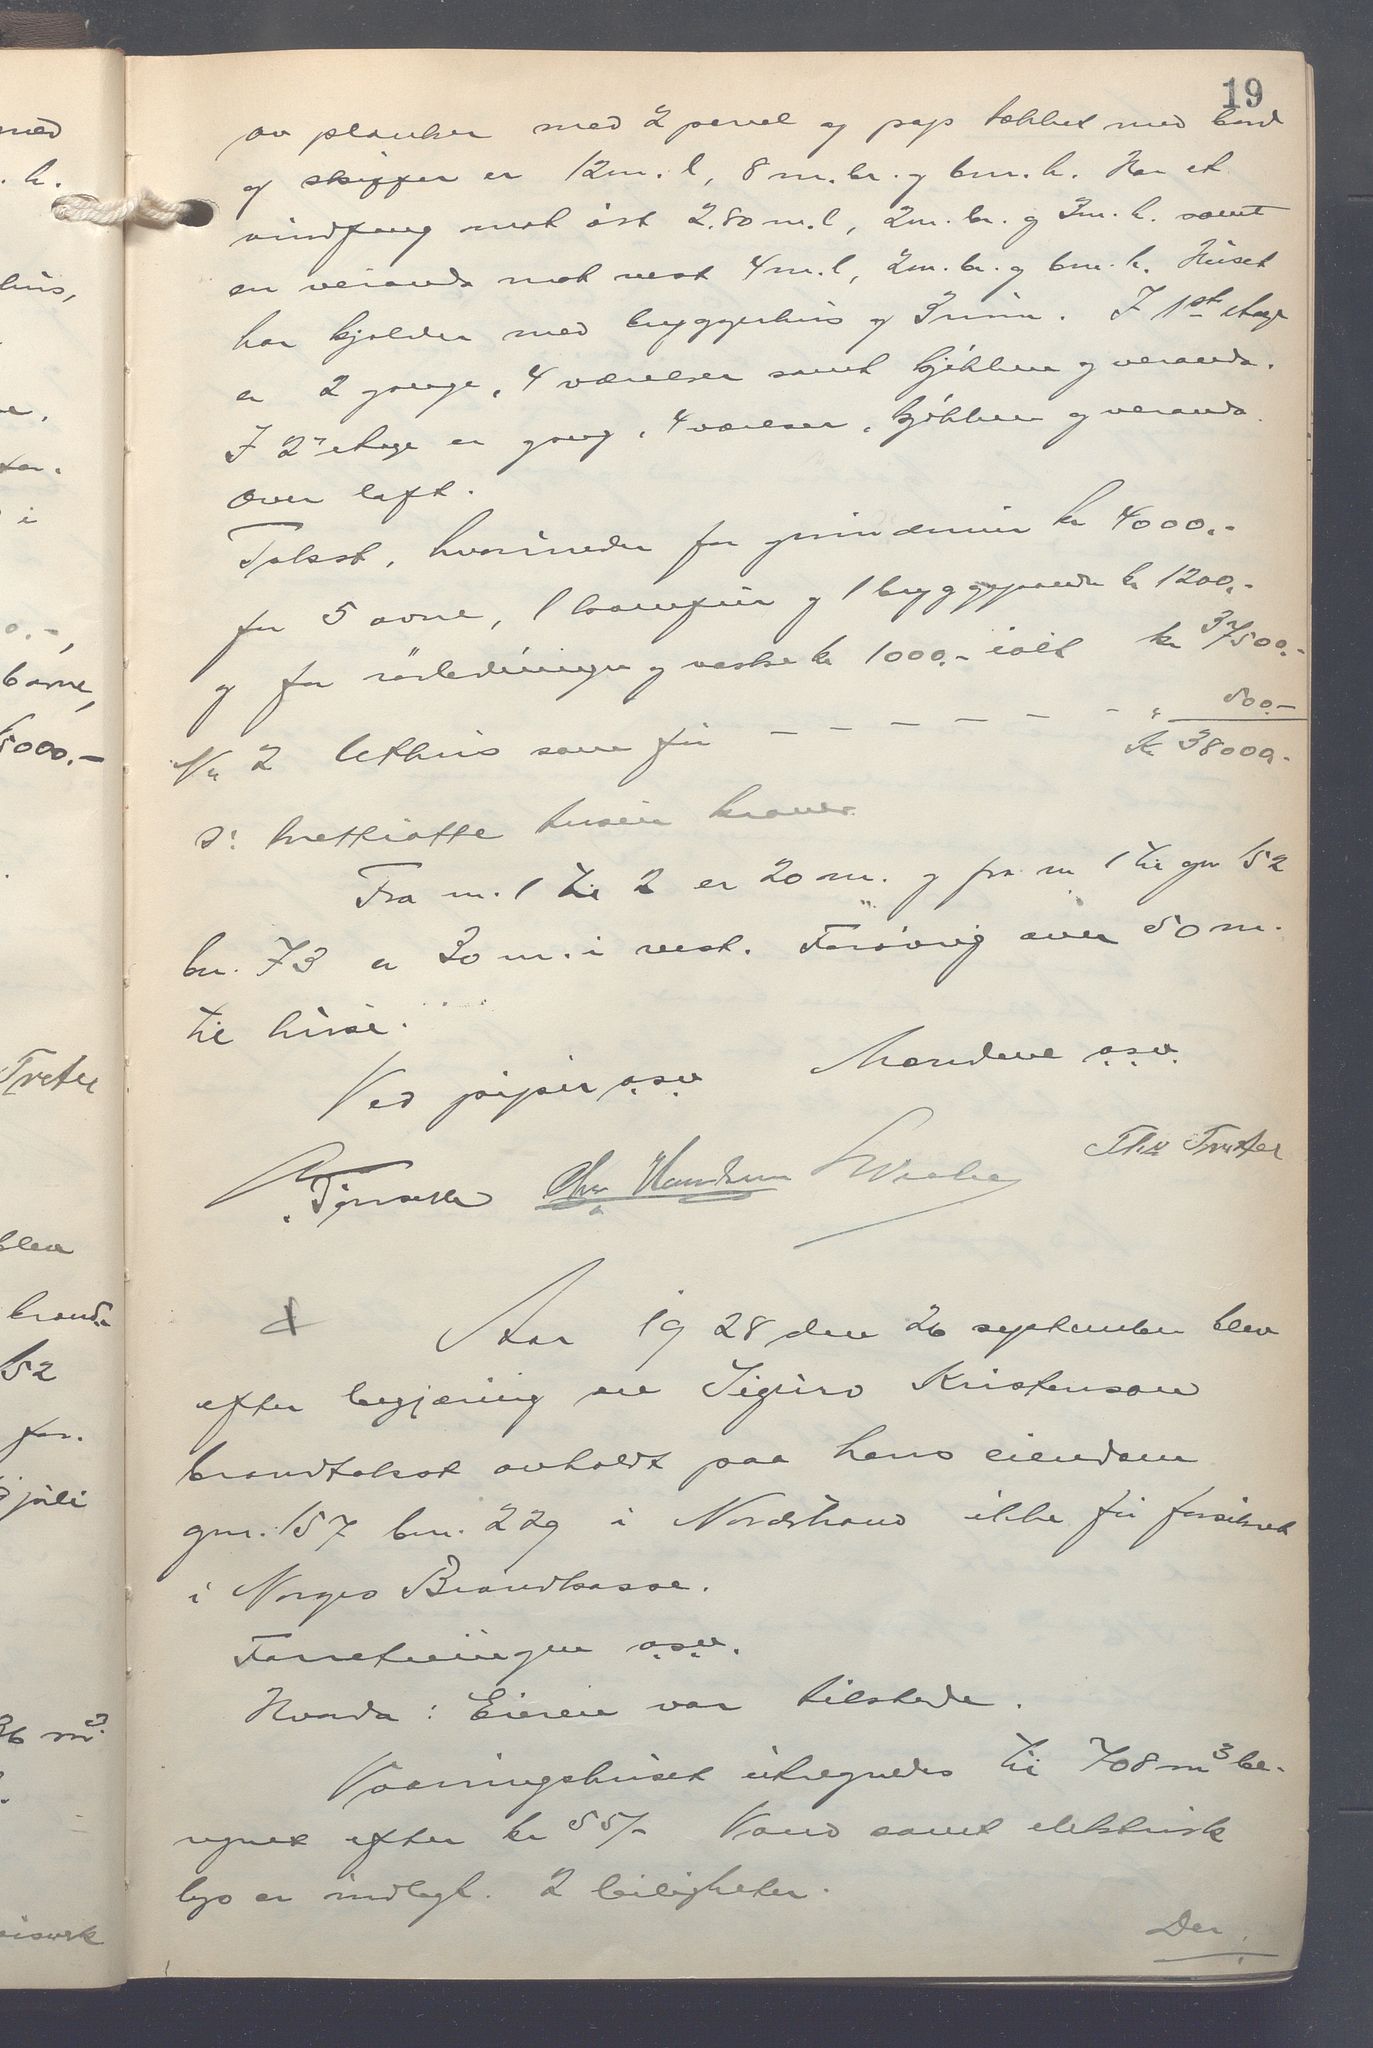 19
av planker med 2 panel og pap tækket med bord
og skiffer er 12 m. l, 8 m. br. og 6 m. h. Har et
vindfang mot öst 2.80 m. l, 2 m. br. og 3 m. h. samt
en veranda mot vest 4 m. l, 2 m. br. og 6 m. h. Huset
har kjelder med bryggerhus og 3 rum. I 1st etage
er 2 gange, 4 værelser samt kjökken og veranda.
I 2n etage er gang, 4 værelser, kjökken og veranda.
Over loft.
Takst, hvorinede for grundmur kr 4000.-
for 5 ovne, 1 komfur og 1 bryggepande kr 1200.-
og for rörledninger og vaske kr 1000.- ialt kr 37500.-
Nr 2 Uthus som för — — — — — — " 500.-
Kr 38000.-
s: trettiotte tusen kroner
Fra nr. 1 til 2 er 20 m. og fra nr 1 til gnr 152
bn. 73 er 30 m. i vest. Forövrig over 50 m.
til huse.
Ved piper o.s.v. Mændene o.s.v.
Tönnesen Chr Knudsen Wiebe Ths Tveter
Aar 1928 den 26 september blev
efter begjæring av Sigurd Kristensen
brandtakst avholdt paa hans eiendom
gnr. 157 bn. 229 i Nordstrand ikke för forsikret
i Norges Brandkasse.
Forretningen o.s.v.
Hvorda: Eieren var tilstede.
Vaaningshuset utregnedes til 708 m3 be-
regnet efter kr 55/- Vand samt elektrisk
lys er indlagt. 2 leiligheter.
Der
med
. h.
hus,
i
6 ovne,
5000.-
Tveter
blev
brandt
152
for.
juli
36 m3.